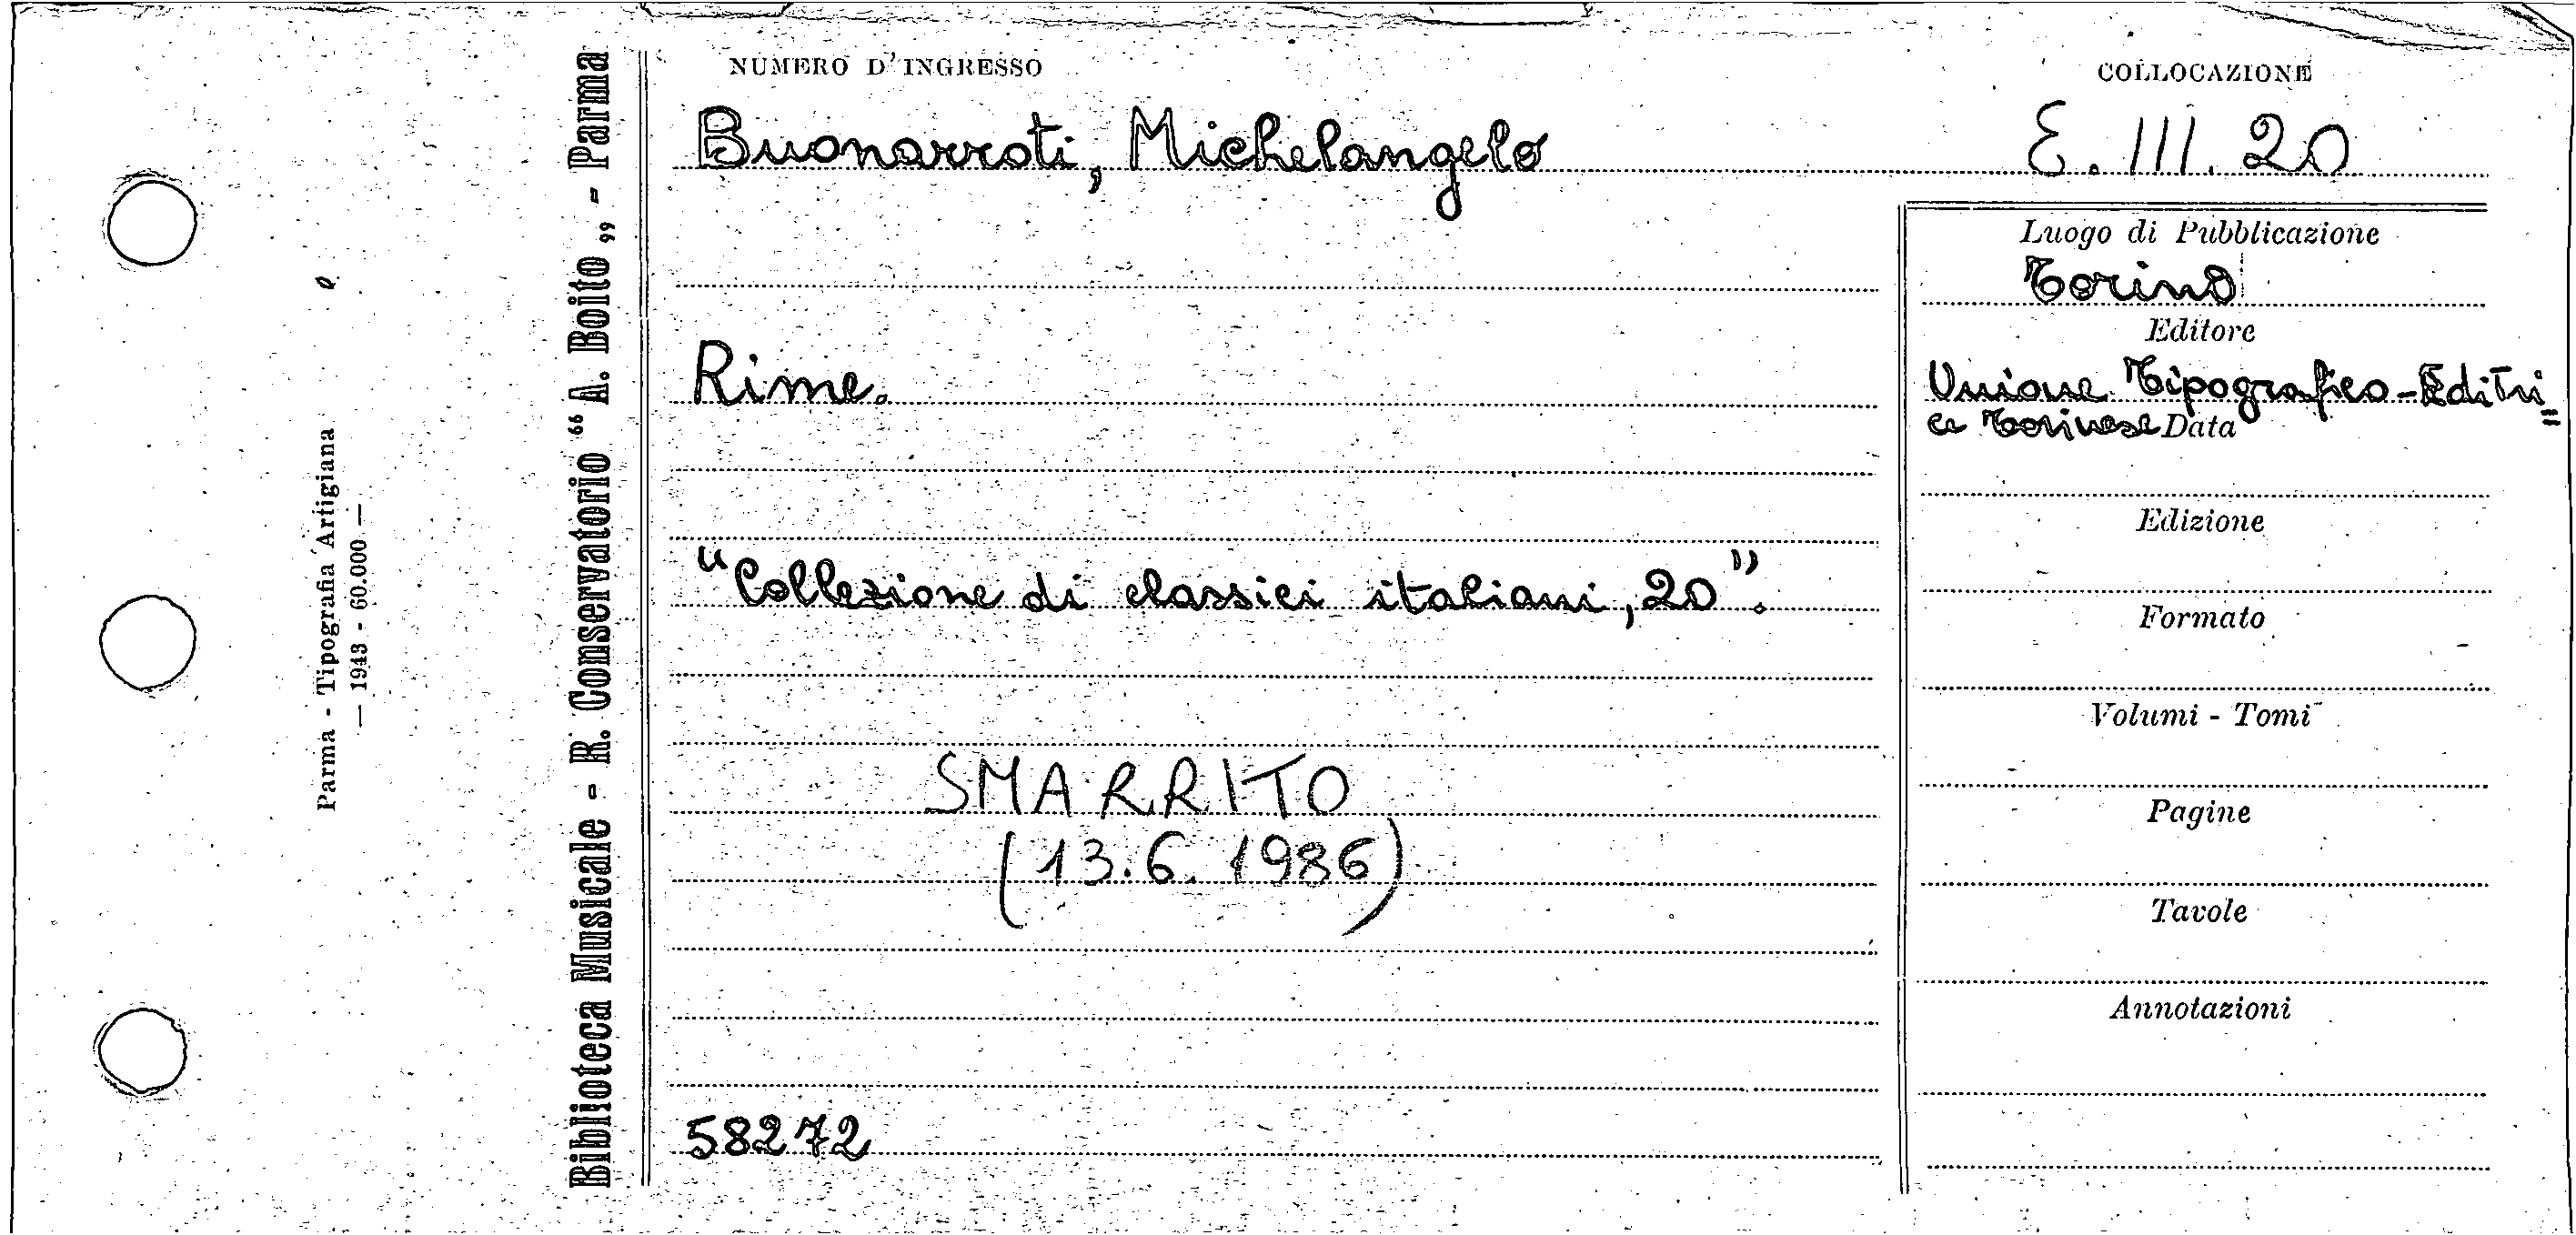 NUMERO D'INGRESSO
COLLOCAZIONE
Buonarroti, Michelangelo
E. III. 20
Rime.
"Collezione di classici italiani, 20".
SMARRITO
(13.6.1986)
58272
Luogo di Pubblicazione
Torino
Editore
Unione Tipografico-Editri=
ce Torinese
Data
Edizione
Formato
Volumi - Tomi
Pagine
Tavole
Annotazioni
Biblioteca Musicale - R. Conservatorio "A. Boito„ - Parma
Parma - Tipografia Artigiana
— 1943 - 60.000 —